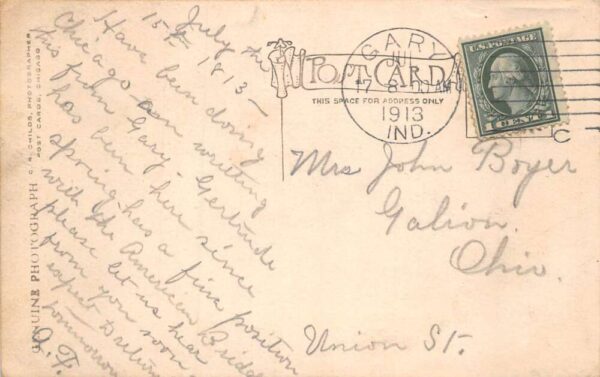 July the
15th 1813-
Have been doing
Chicago am writing
this from Gary - Gertrude
has been here since
spring - has a fine position
with the American Bridge
please let us hear
from you soon
expect to return
tomorrow
G. F.
GENUINE PHOTOGRAPH
C. R. CHILDS, PHOTOGRAPHER
POST CARDS, CHICAGO
POST CARD
THIS SPACE FOR ADDRESS ONLY
GARY
JUL
17
1913
IND.
U.S. POSTAGE
1 CENT 1
C
Mrs John Boyer
Galion
Ohio.
Union St.